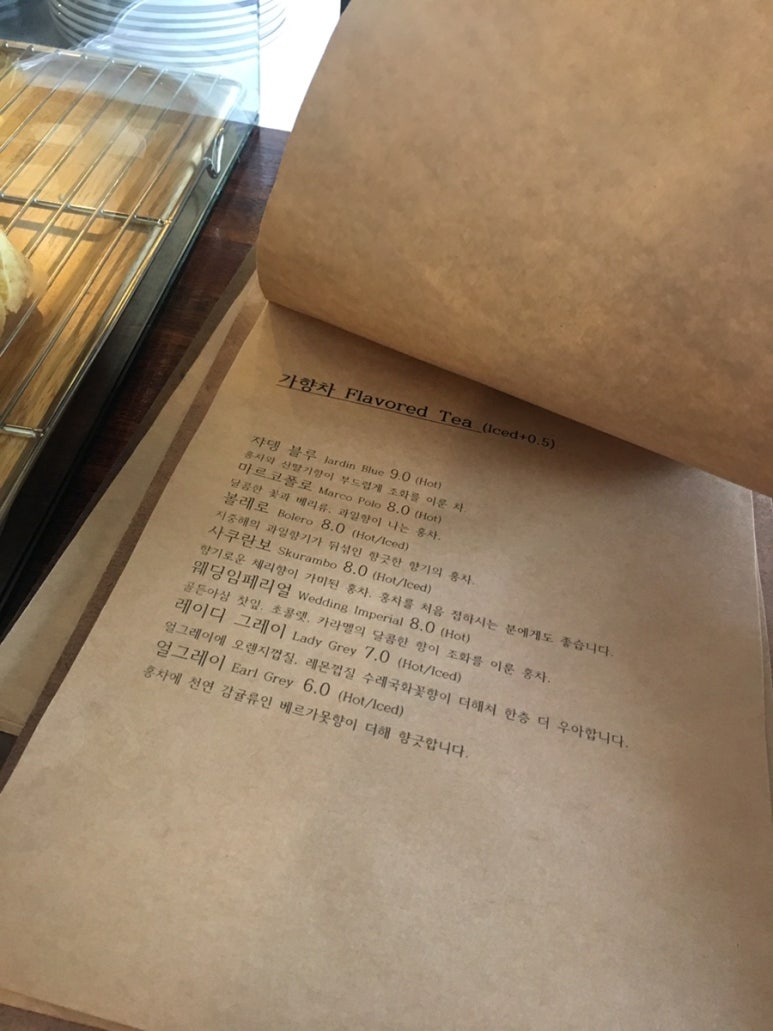 가향차 Flavored Tea (Iced+0.5)
쟈뎅 블루 Jardin Blue 9.0 (Hot)
홍차와 신랄가향이 부드럽게 조화를 이룬 차.
마르코폴로 Marco Polo 8.0 (Hot)
달콤한 꽃과 베리류, 과일향이 나는 홍차.
볼레로 Bolero 8.0 (Hot/Iced)
지중해의 과일향기가 뒤섞인 향긋한 향기의 홍차.
사쿠란보 Skurambo 8.0 (Hot/Iced)
향기로운 체리향이 가미된 홍차. 홍차를 처음 접하시는 분에게도 좋습니다.
웨딩임페리얼 Wedding Imperial 8.0 (Hot)
골든아삼 찻잎, 초콜렛, 카라멜의 달콤한 향이 조화를 이룬 홍차.
레이디 그레이 Lady Grey 7.0 (Hot/Iced)
얼그레이에 오렌지껍질, 레몬껍질 수레국화꽃향이 더해져 한층 더 우아합니다.
얼그레이 Earl Grey 6.0 (Hot/Iced)
홍차에 천연 감귤류인 베르가못향이 더해 향긋합니다.